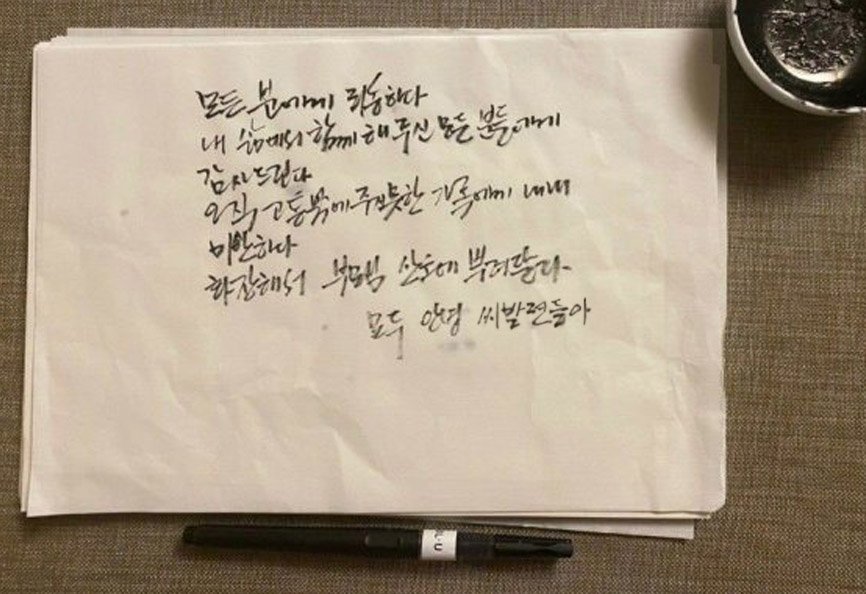 모든 분에게 죄송하다
내 삶에서 함께 해 주신 모든 분들에게
감사드린다
오직 고통밖에 주지못한 가족에게 내내
미안하다
화장해서 부모님 산소에 뿌려달라
모두 안녕 씨발련들아